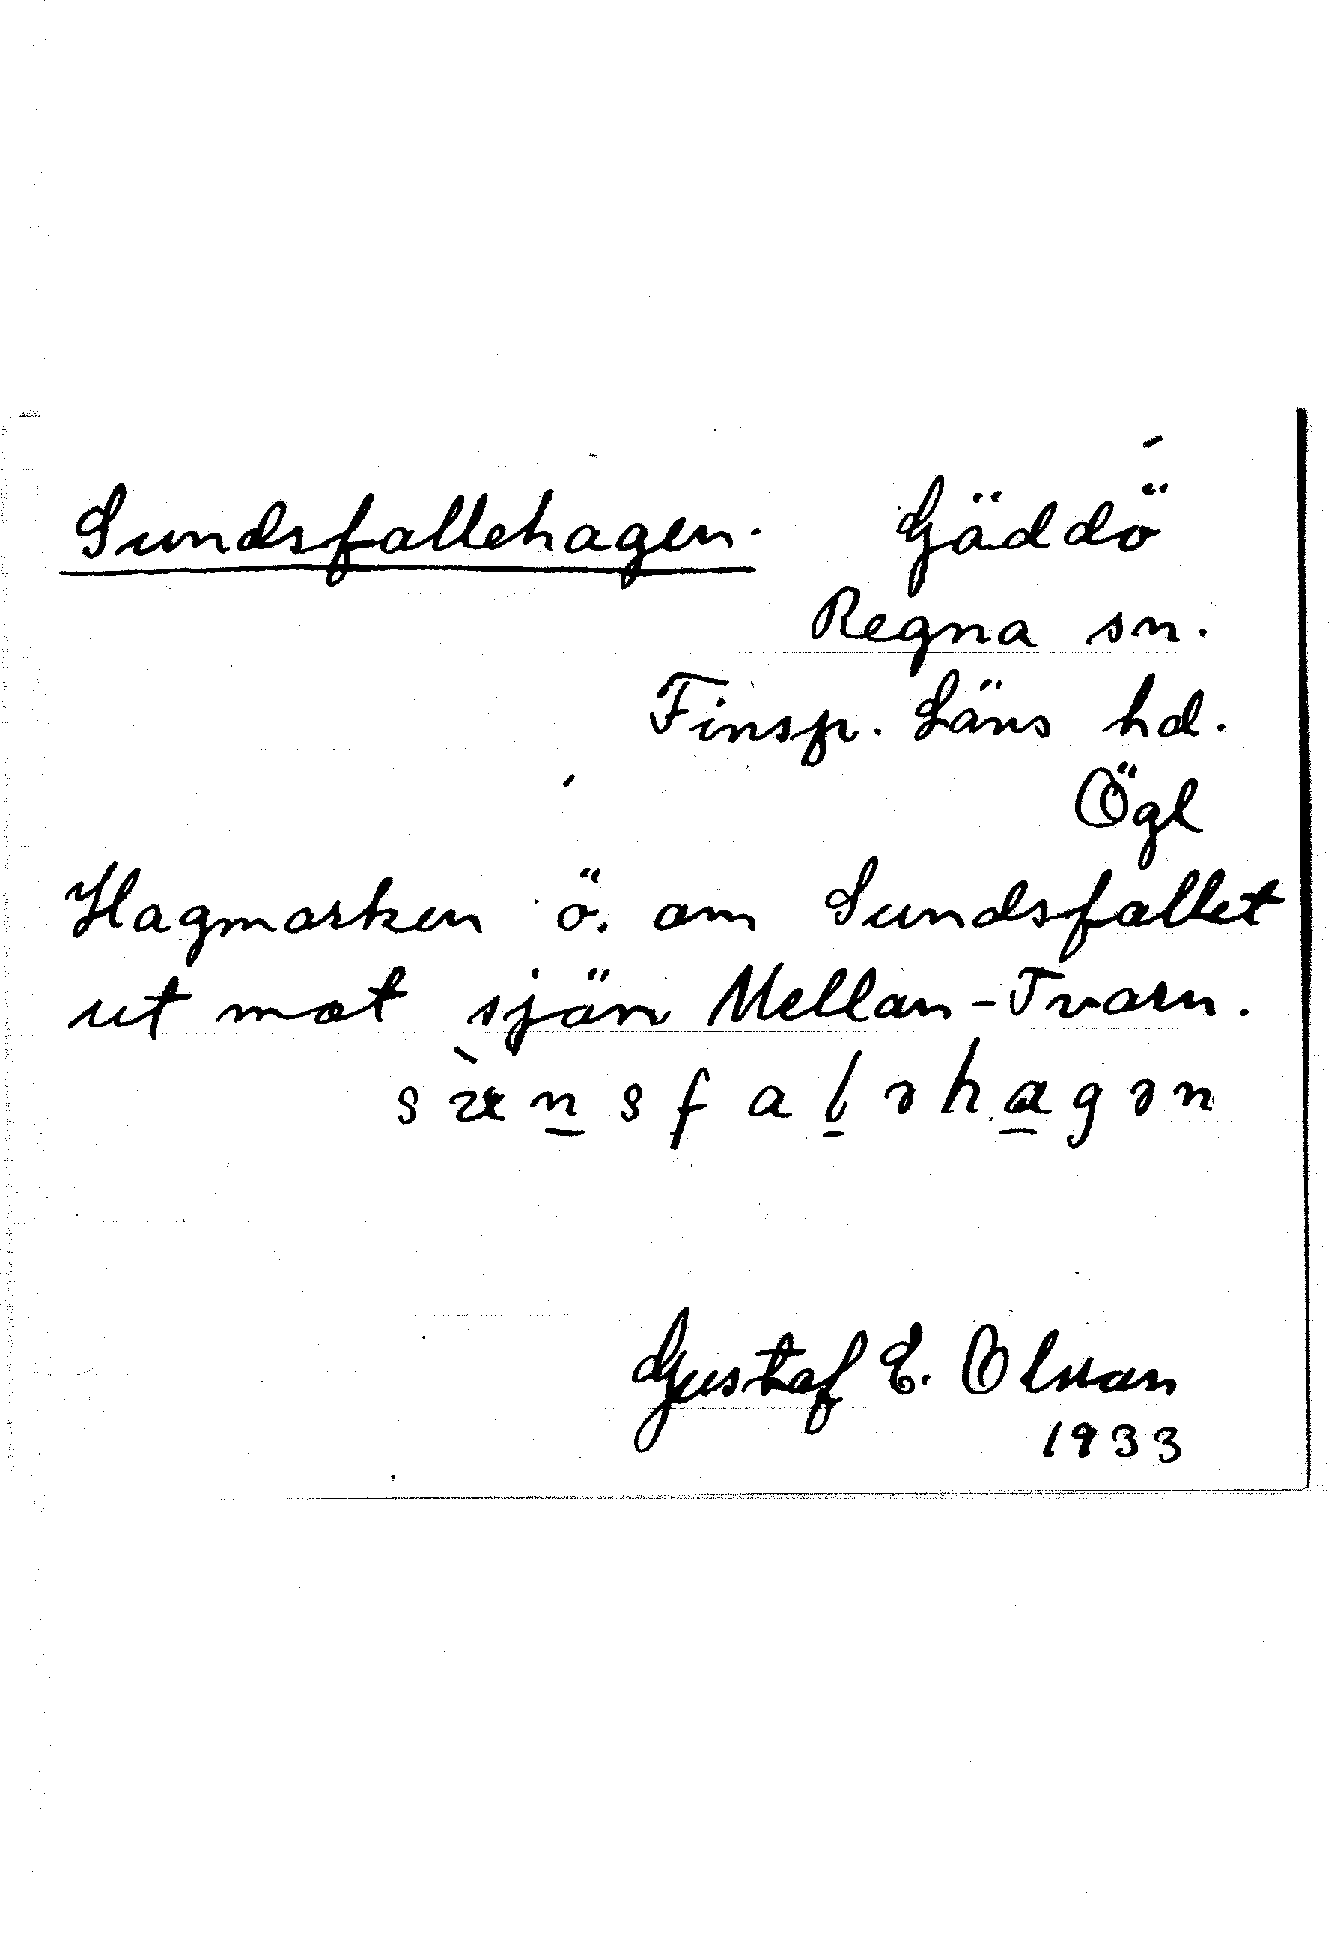 Sundsfallehagen. Gäddö
Regna sn.
Finsp. Läns hd.
Ögl
Hagmarken ö. om Sundsfallet
ut mot sjön Mellan-Tvarn.
Gustaf E. Olman
1933